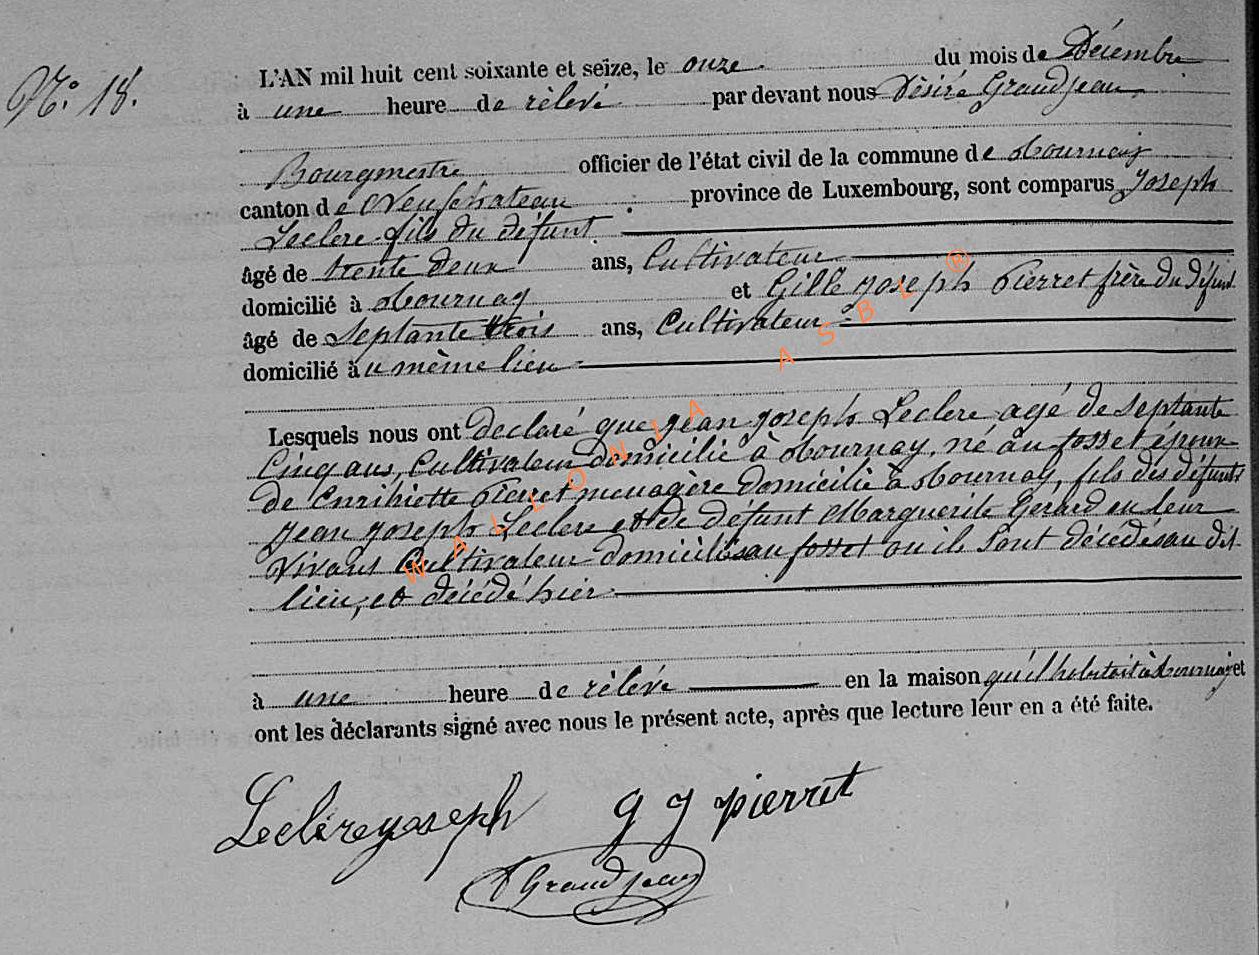 N.° 18.
L'AN mil huit cent soixante et seize, le onze du mois de Décembre
à une heure de rélevé par devant nous Désiré Grandjean,
Bourgmestre officier de l'état civil de la commune de Tournay
canton de Neufchateau province de Luxembourg, sont comparus Joseph
Leclere fils du défunt
âgé de trente deux ans, Cultivateur
domicilié à Tournay et Gille Joseph Pierret frère du défunt
âgé de septante trois ans, Cultivateur
domicilié au même lieu
Lesquels nous ont declaré que Jean Joseph Leclere agé de septante
Cinq ans, Cultivateur domicilié à Tournay, né au fosset époux
de Enrihiette Pierret menagère domicilié à Tournay, fils des défunts
Jean Joseph Leclere et de défunt Marguerite Gérard en leur
vivant Cultivateur domiciliés au fosset ou ils sont décédés au dit
lieu, et décédé hier
à une heure de rélévé en la maison qu'il habitait à Tournay et
ont les déclarants signé avec nous le présent acte, après que lecture leur en a été faite.
Leclère Joseph g J pierret
D Grandjean
WALLONIA ASBL ®